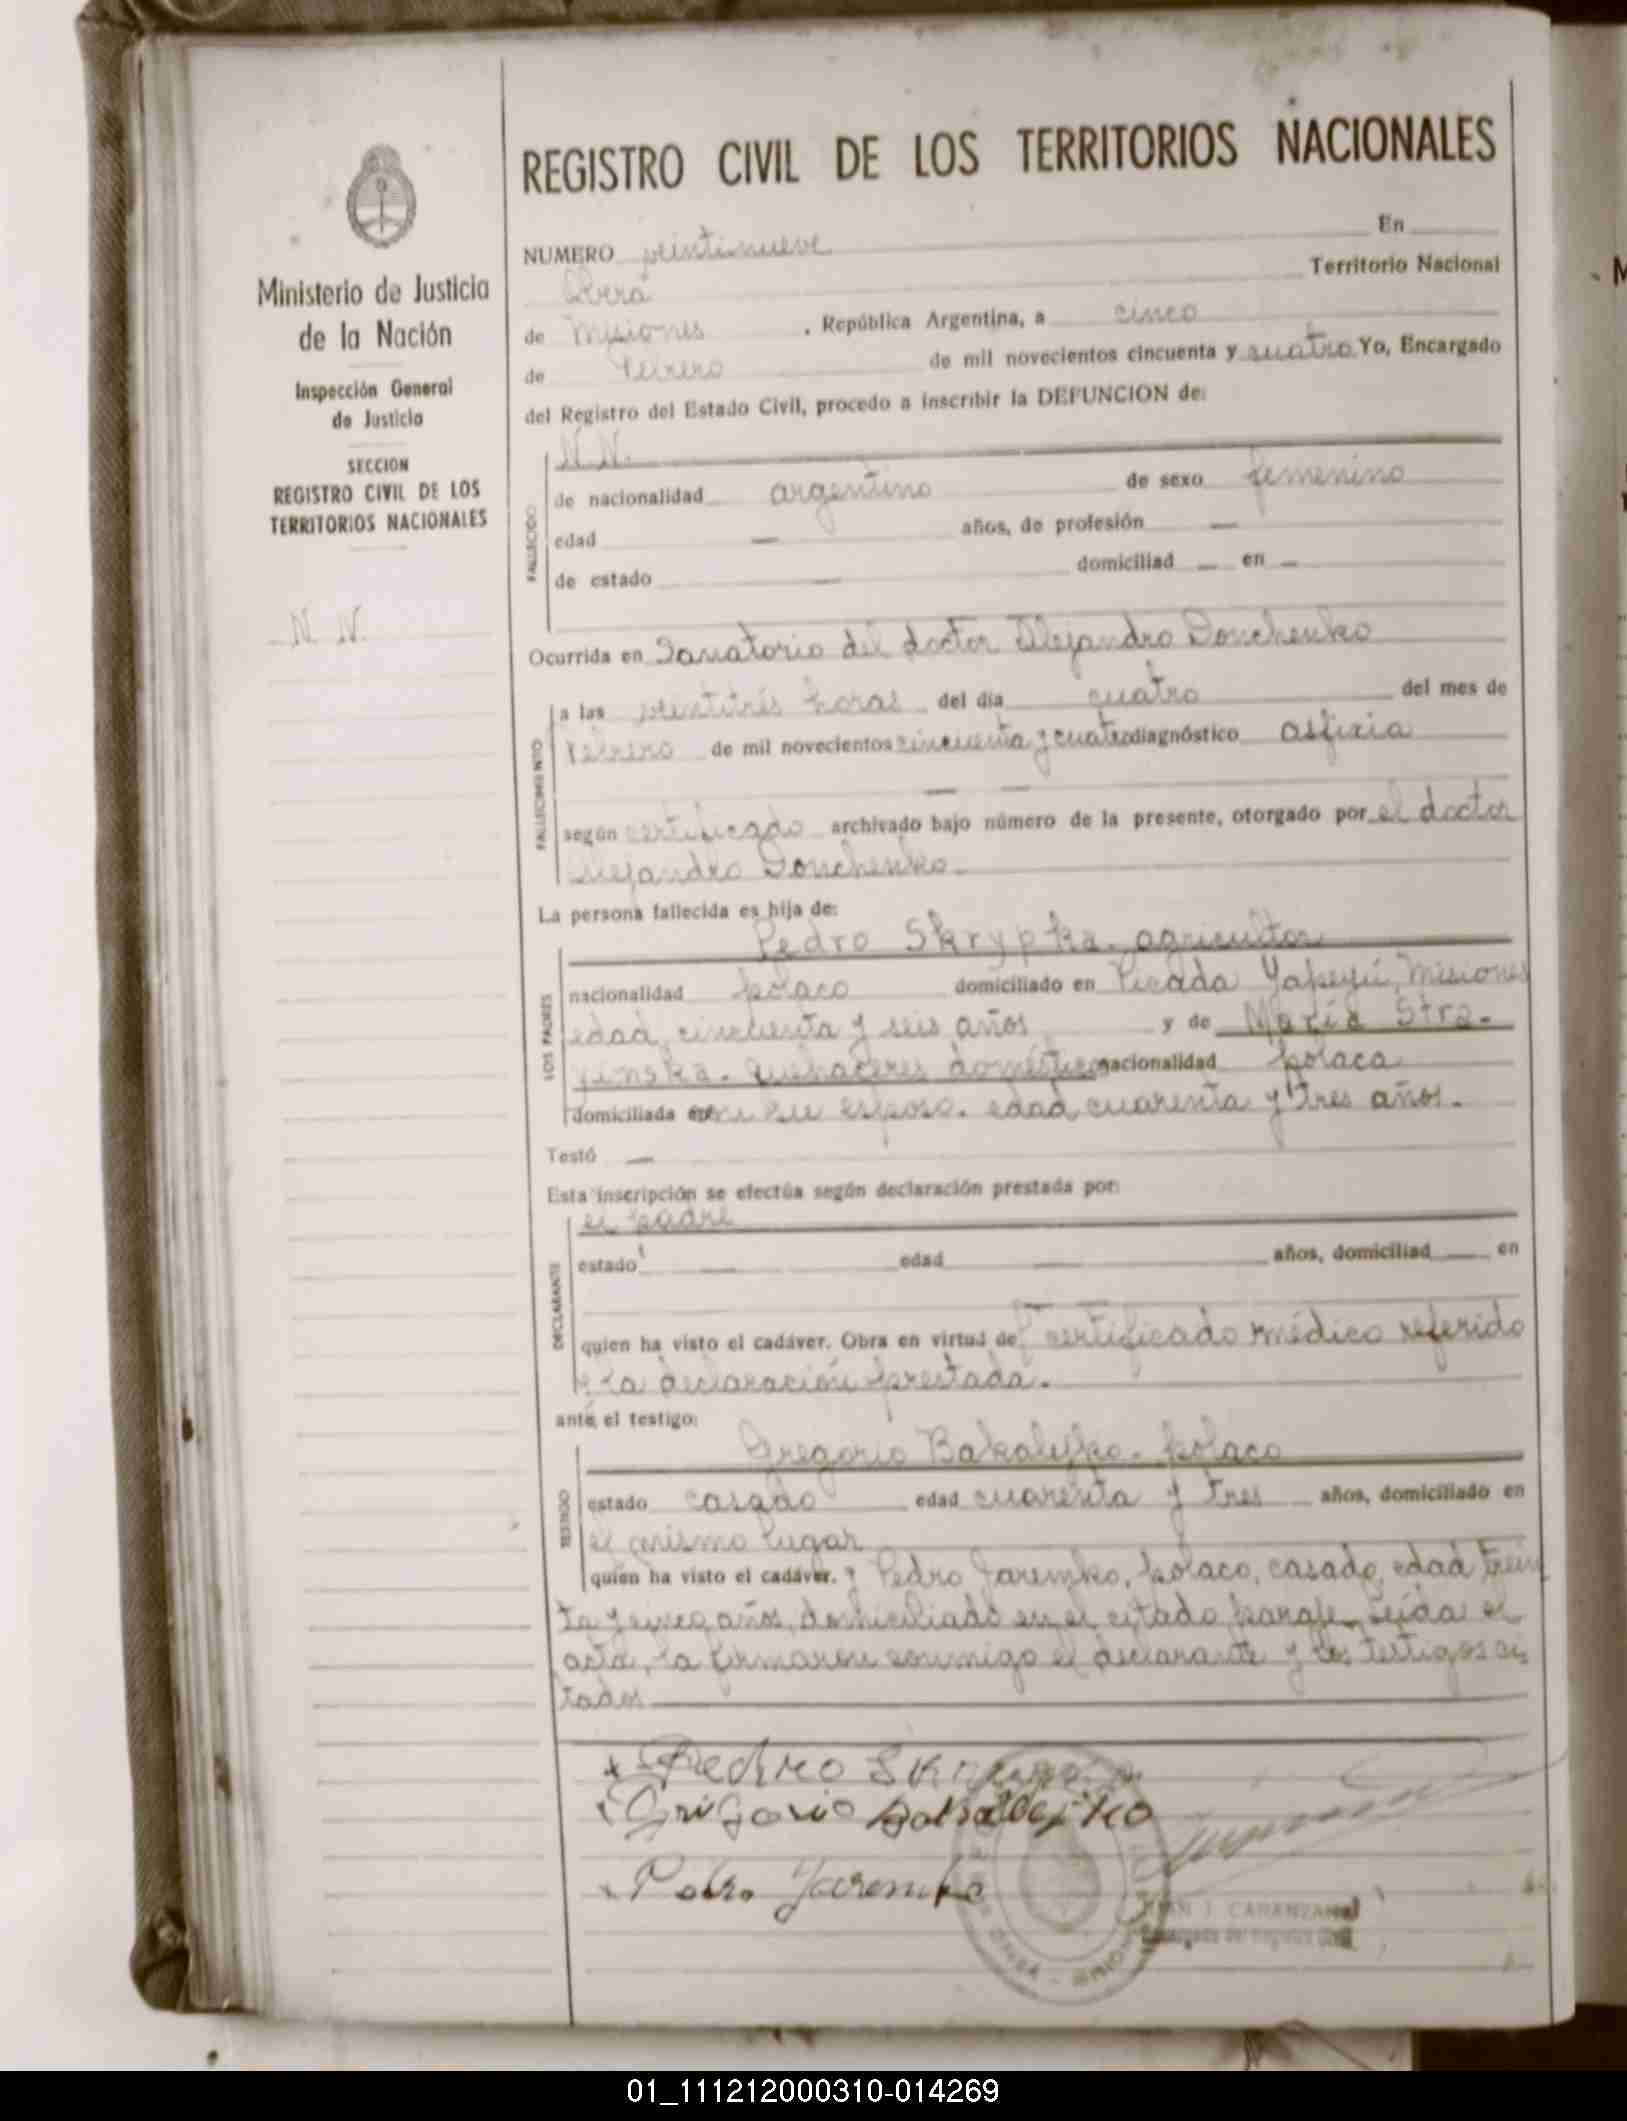 Ministerio de Justicia
de la Nación
Inspección General
de Justicia
SECCION
REGISTRO CIVIL DE LOS
TERRITORIOS NACIONALES
N. N.
REGISTRO CIVIL DE LOS TERRITORIOS NACIONALES
NUMERO veintinueve En
Oberá Territorio Nacional
de Misiones , República Argentina, a cinco
de febrero de mil novecientos cincuenta y cuatro Yo, Encargado
del Registro del Estado Civil, procedo a inscribir la DEFUNCION de:
FALLECIDO
N. N.
de nacionalidad argentino de sexo femenino
edad — años, de profesión —
de estado — domiciliad — en —
Ocurrida en Sanatorio del doctor Alejandro Donchenko
FALLECIMIENTO
a las veintitrés horas del día cuatro del mes de
febrero de mil novecientos cincuenta y cuatro diagnóstico asfixia
— —
según certificado archivado bajo número de la presente, otorgado por el doctor
Alejandro Donchenko.
La persona fallecida es hija de:
LOS PADRES
Pedro Skrypka. agricultor
nacionalidad polaco domiciliado en Picada Yapeyú, Misiones
edad cincuenta y seis años y de María Stra-
yinska. quehaceres domésticos nacionalidad polaca
domiciliada con su esposo. edad cuarenta y tres años.
Testó —
Esta inscripción se efectúa según declaración prestada por:
DECLARANTE
el padre
estado — edad — años, domiciliad — en
quien ha visto el cadáver. Obra en virtud del certificado médico referido
y la declaración prestada.
ante el testigo:
TESTIGO
Gregorio Bakalejko. polaco
estado casado edad cuarenta y tres años, domiciliado en
el mismo lugar
quien ha visto el cadáver. y Pedro Jaremko, polaco, casado, edad trein
ta y cinco años, domiciliado en el citado paraje. Leída el
acta, la firmaron conmigo el declarante y los testigos ci
tados
Pedro Skrypka
Grigorio Bakalejko
Pedro Jaremko
JUAN J. CARANZANO
Encargado del Registro Civil
01_111212000310-014269